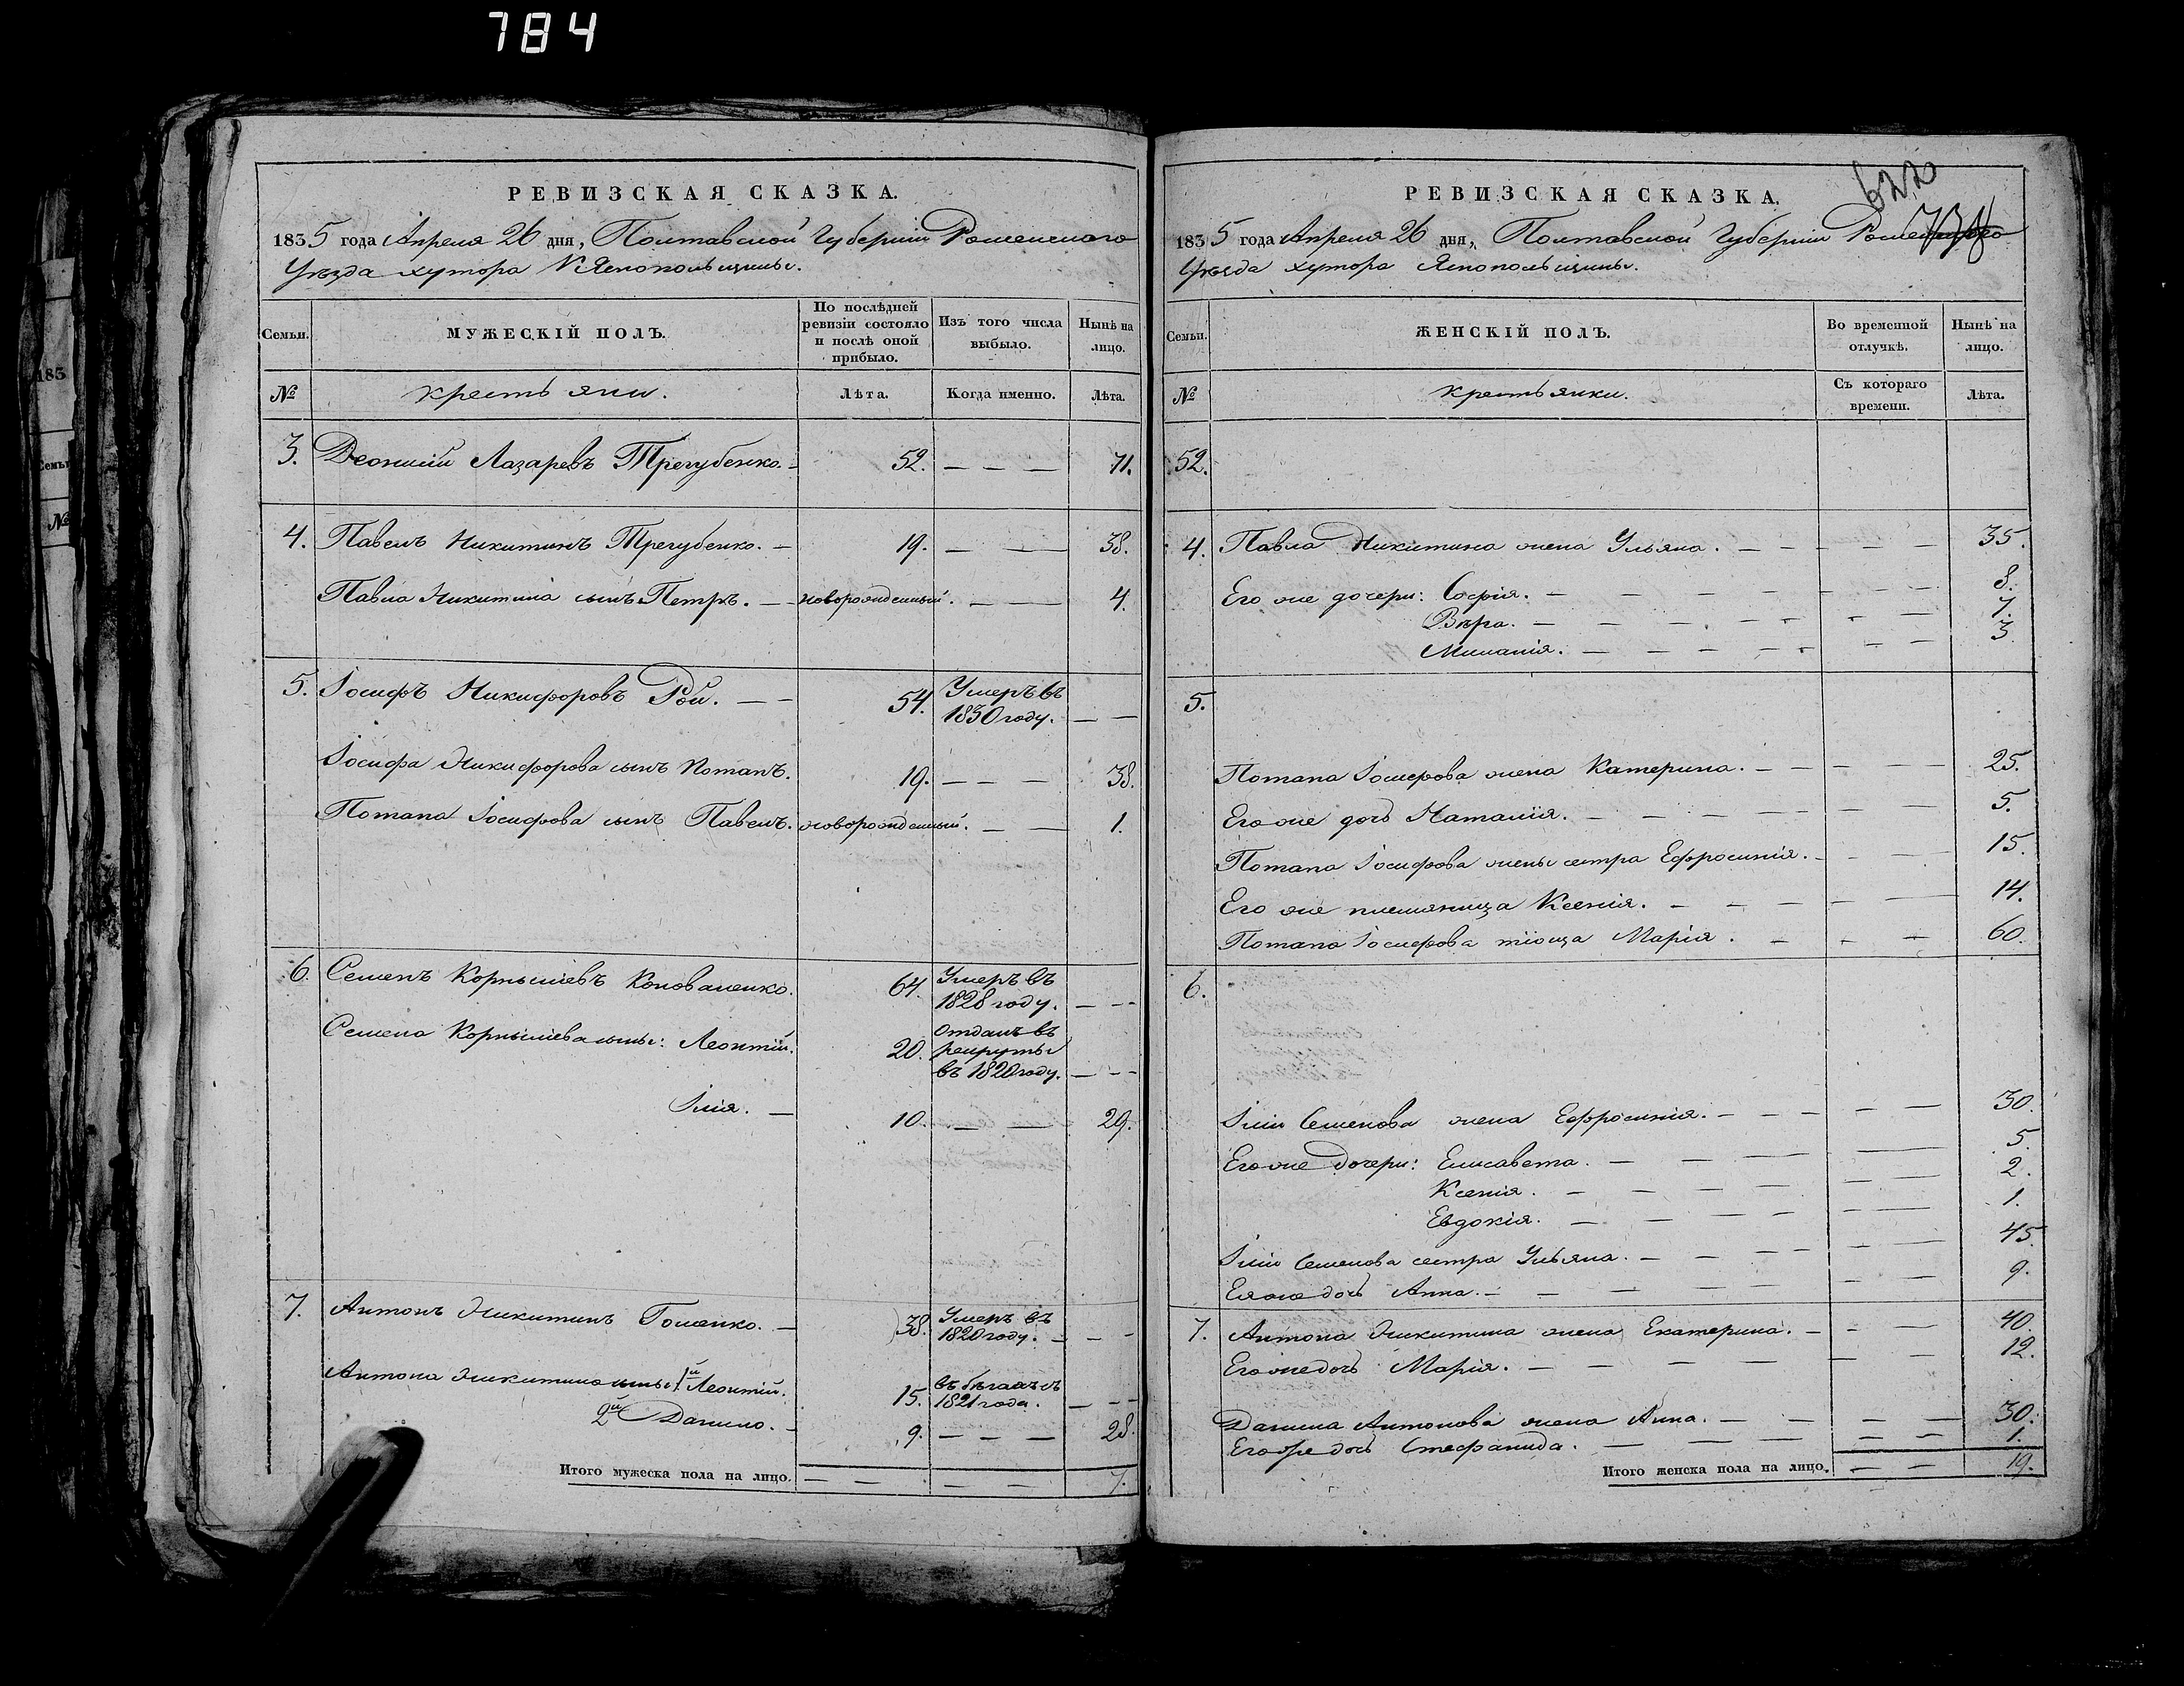 784
РЕВИЗСКАЯ СКАЗКА.
1835 года Апреля 26 дня, Полтавской Губернiи Роменского
Уѣзда хутора Яснопольщины.
Семьи.
МУЖЕСКІЙ ПОЛЪ.
По послѣдней ревизіи состояло и послѣ оной прибыло.
Изъ того числа выбыло.
Нынѣ на лицо.
№
крестьяни.
Лѣта.
Когда именно.
Лѣта.
3. Леонтий Лазаревъ Трегубенко. 52. — — — 71.
4. Павелъ Никитинъ Трегубенко. — 19. — — — 38.
Павла Никитина сынъ Петръ. — новорожденный. — — 4.
5. Іосифъ Никифоровъ Рой. — — 54. Умеръ въ 1830 году. — —
Іосифа Никифорова сынъ Потапъ. 19. — — — 38.
Потапа Іосифова сынъ Павелъ. новорожденный. — — 1.
6. Семенъ Корнѣіевъ Коноваленко. 64. Умеръ въ 1828 году. — — —
Семена Корнѣіева сыны: Леонтій. 20. отданъ въ рекруты въ 1820 году. — — —
Ілія. — 10. — — 29.
7. Антонъ Никитинъ Гоменко. — 38. Умеръ въ 1820 году. — — —
Антона Никитина сыны: 1й Леонтій. 15. въ бѣгахъ съ 1821 года. — — —
2й Данило. — 9. — — — 28.
Итого мужеска пола на лицо. — — — — 7.
622
РЕВИЗСКАЯ СКАЗКА.
1835 года Апреля 26 дня, Полтавской Губернiи Роменского
Уѣзда хутора Яснопольщины.
Семьи.
ЖЕНСКІЙ ПОЛЪ.
Во временной отлучкѣ.
Нынѣ на лицо.
№
крестьянки.
Съ котораго времени.
Лѣта.
52.
4. Павла Никитина жена Ульяна. — — — — — 35.
Его же дочери: Софія. — — — — — 8.
Вѣра. — — — — — 7.
Миланія. — — — — — 3
5.
Потапа Іосифова жена Катерина. — — — — — 25.
Его же дочь Наталія. — — — — — 5.
Потапа Іосифова жены сестра Ефросинія. — — — 15.
Его же племяница Ксенія. — — — — — 14.
Потапа Іосифова тіоща Марія. — — — 60.
6.
Іліи Семенова жена Ефросинія. — — — — — 30.
Его же дочери: Елисавета. — — — — — 5
Ксенія. — — — — — 2.
Евдокія. — — — — — 1.
Іліи Семенова сестра Ульяна. — — — — — 45.
Ея же дочь Анна. — — — — 9.
7. Антона Никитина жена Екатерина. — — — 40.
Его же дочь Марія. — — — — — 12.
Данила Антонова жена Анна. — — — — 30.
Его же дочь Стефанида. — — — — — 1.
Итого женска пола на лицо. — — 19.
183
Семьи
№